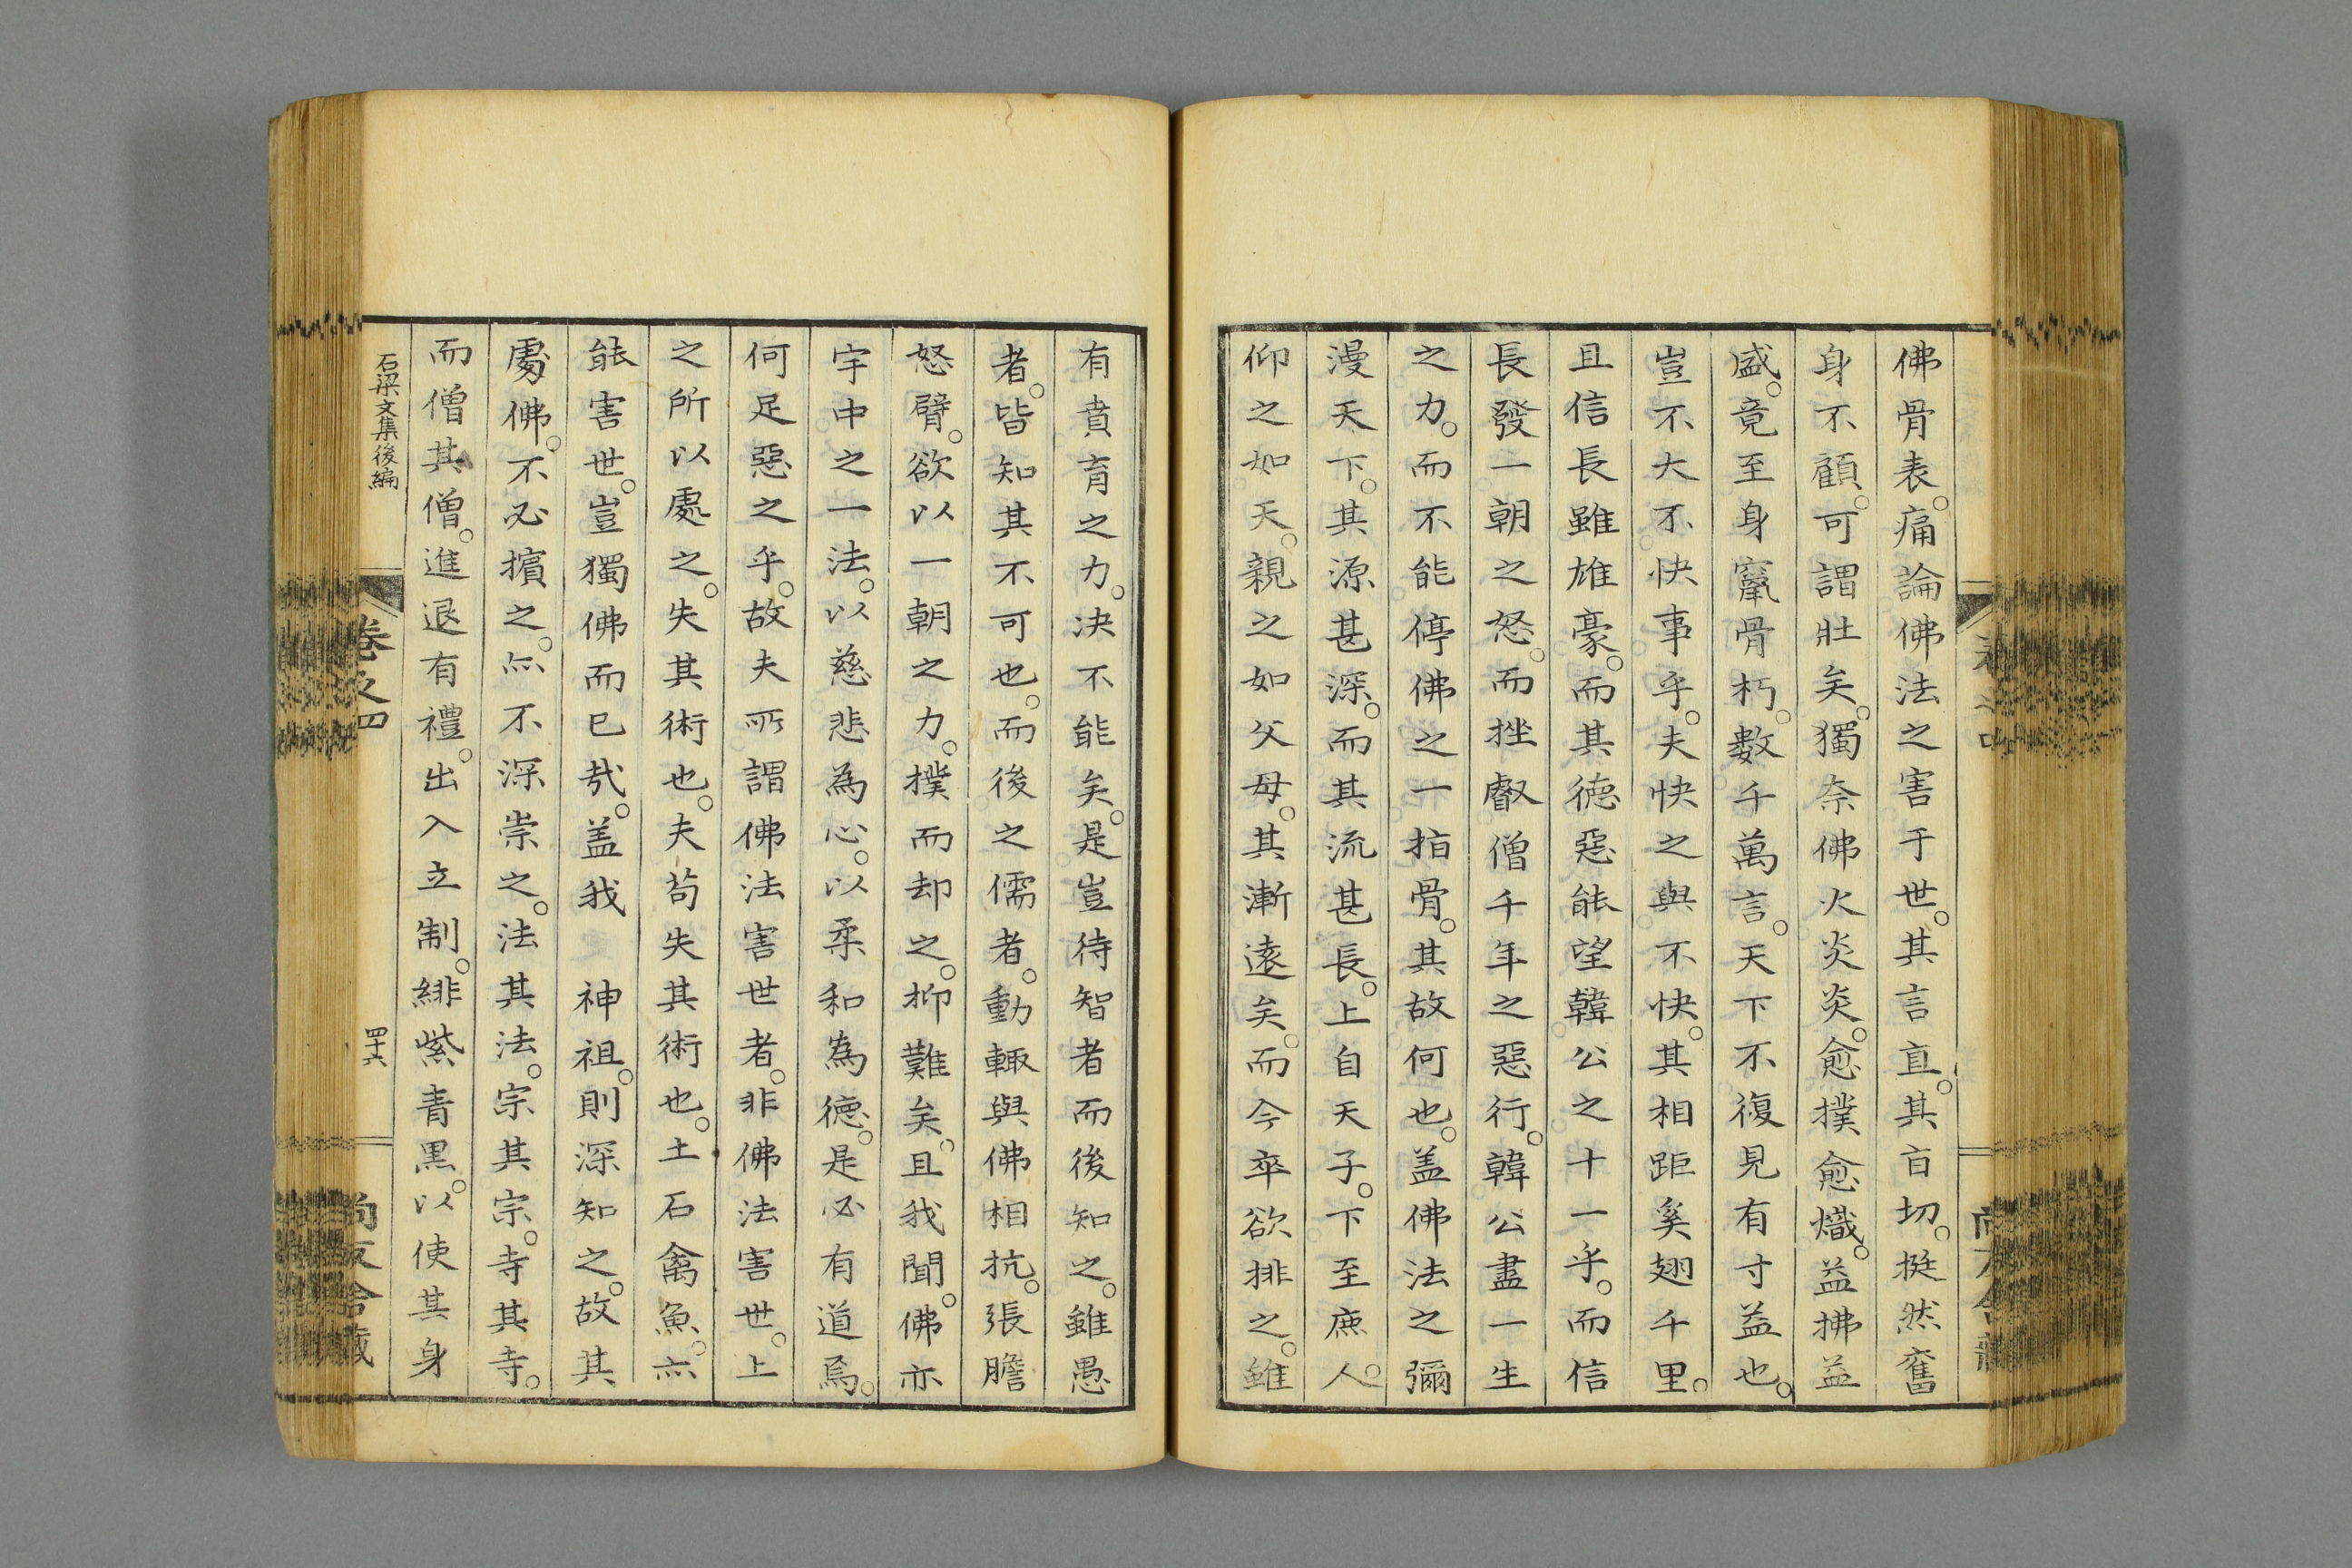 佛骨表。痛論佛法之害于世。其言直。其旨切。挺然奮
身不顧。可謂壯矣。獨奈佛火炎炎。愈撲愈熾。益拂益
盛。竟至身竄骨朽。數千萬言。天下不復見有寸益也。
豈不大不快事乎。夫快之與不快。其相距奚翅千里。
且信長雖雄豪。而其德惡能望韓公之十一乎。而信
長發一朝之怒。而挫叡僧千年之惡行。韓公盡一生
之力。而不能停佛之一指骨。其故何也。盖佛法之彌
漫天下。其源甚深。而其流甚長。上自天子。下至庶人。
仰之如天。親之如父母。其漸遠矣。而今卒欲排之。雖
有賁育之力。决不能矣。是豈待智者而後知之。雖愚
者。皆知其不可也。而後之儒者。動輙與佛相抗。張膽
怒臂。欲以一朝之力。撲而却之。抑難矣。且我聞。佛亦
宇中之一法。以慈悲為心。以柔和為德。是必有道焉。
何足惡之乎。故夫所謂佛法害世者。非佛法害世。上
之所以處之。失其術也。夫苟失其術也。土石禽魚。亦
能害世。豈獨佛而已哉。盖我　神祖。則深知之。故其
處佛。不必擯之。亦不深崇之。法其法。宗其宗。寺其寺。
而僧其僧。進退有禮。出入立制。緋紫青黒。以使其身
石梁文集後編
卷之四
四十六